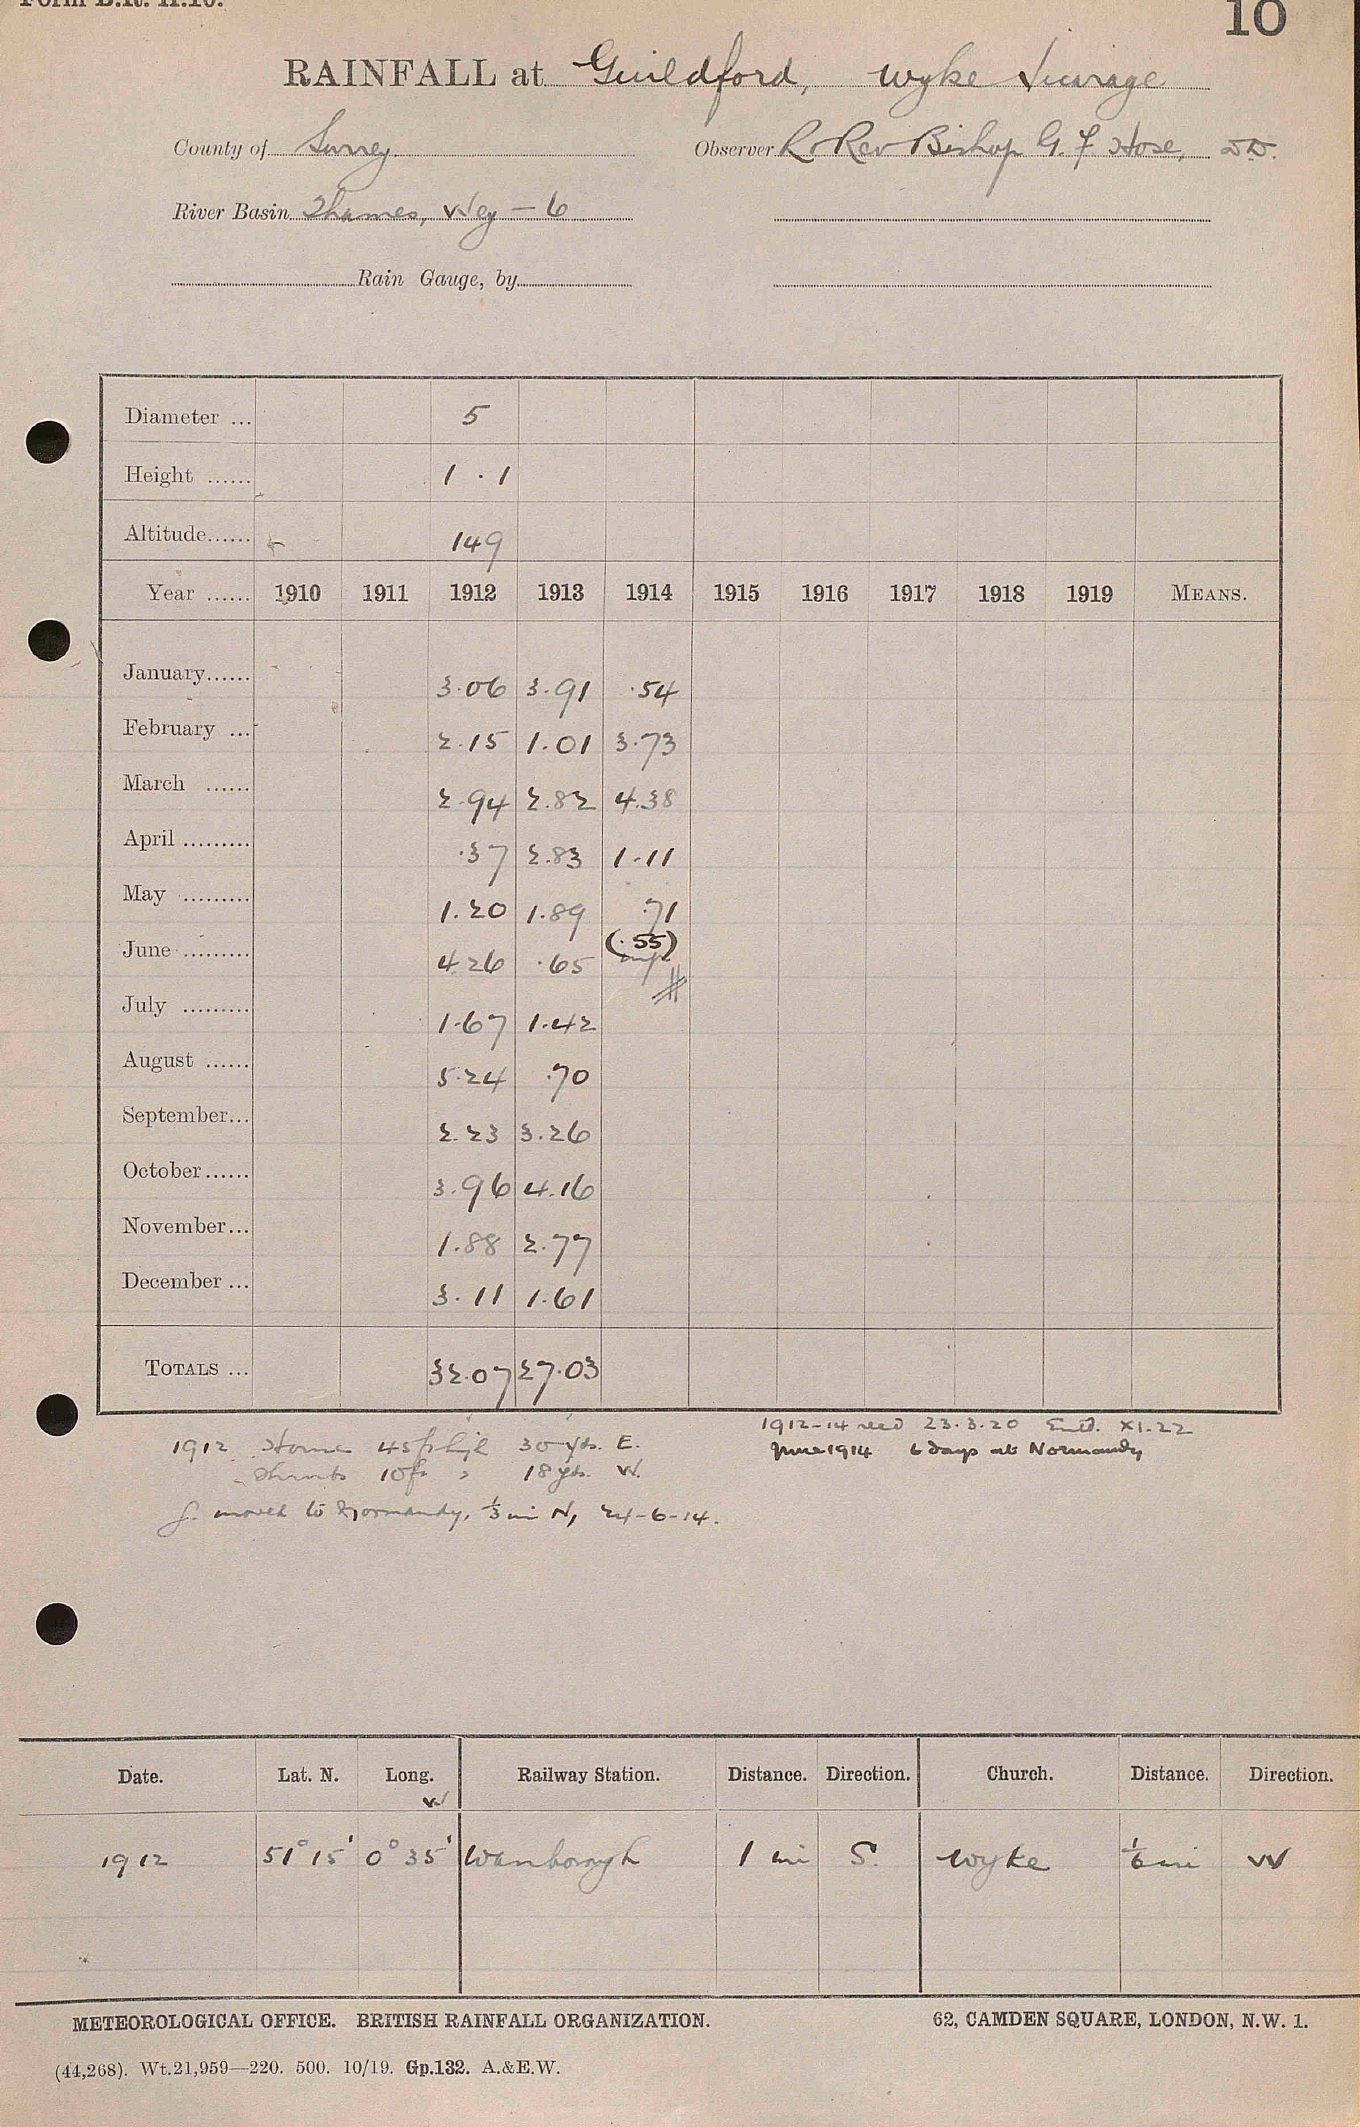 Form B.R. H.10.
10
RAINFALL at Guildford, Wyke Vicarage
County of Surrey Observer R. Rev Bishop G. F. Hose, D.D.
River Basin Thames, Wey – 6
Rain Gauge, by
Diameter ... 5
Height ...... 1 . 1
Altitude...... 149
Year ...... 1910 1911 1912 1913 1914 1915 1916 1917 1918 1919 MEANS.
January...... 3.06 3.91 .54
February ... 2.15 1.01 3.73
March ...... 2.94 2.82 4.38
April ......... .37 2.83 1.11
May ......... 1.20 1.89 .71
June ......... 4.26 .65 (.55)
July ......... 1.67 1.42
August ...... 5.24 .70
September... 2.23 3.26
October...... 3.96 4.16
November... 1.88 2.77
December ... 3.11 1.61
TOTALS ... 32.07 27.03
1912-14 recd 23.3.20 Entd. XI.22
1912 House 45ft high 30 yds. E.
June 1914 6 days at Normandy
Shrubs 10ft " 18 yds. W.
G. moved to Normandy, 1/3 mi N, 24-6-14.
Date. Lat. N. Long. W Railway Station. Distance. Direction. Church. Distance. Direction.
1912 51° 15' 0° 35' Wanborough 1 mi S. Wyke 1/6 mi W
METEOROLOGICAL OFFICE. BRITISH RAINFALL ORGANIZATION. 62, CAMDEN SQUARE, LONDON, N.W. 1.
(44,268). Wt.21,959—220. 500. 10/19. Gp.132. A.&E.W.